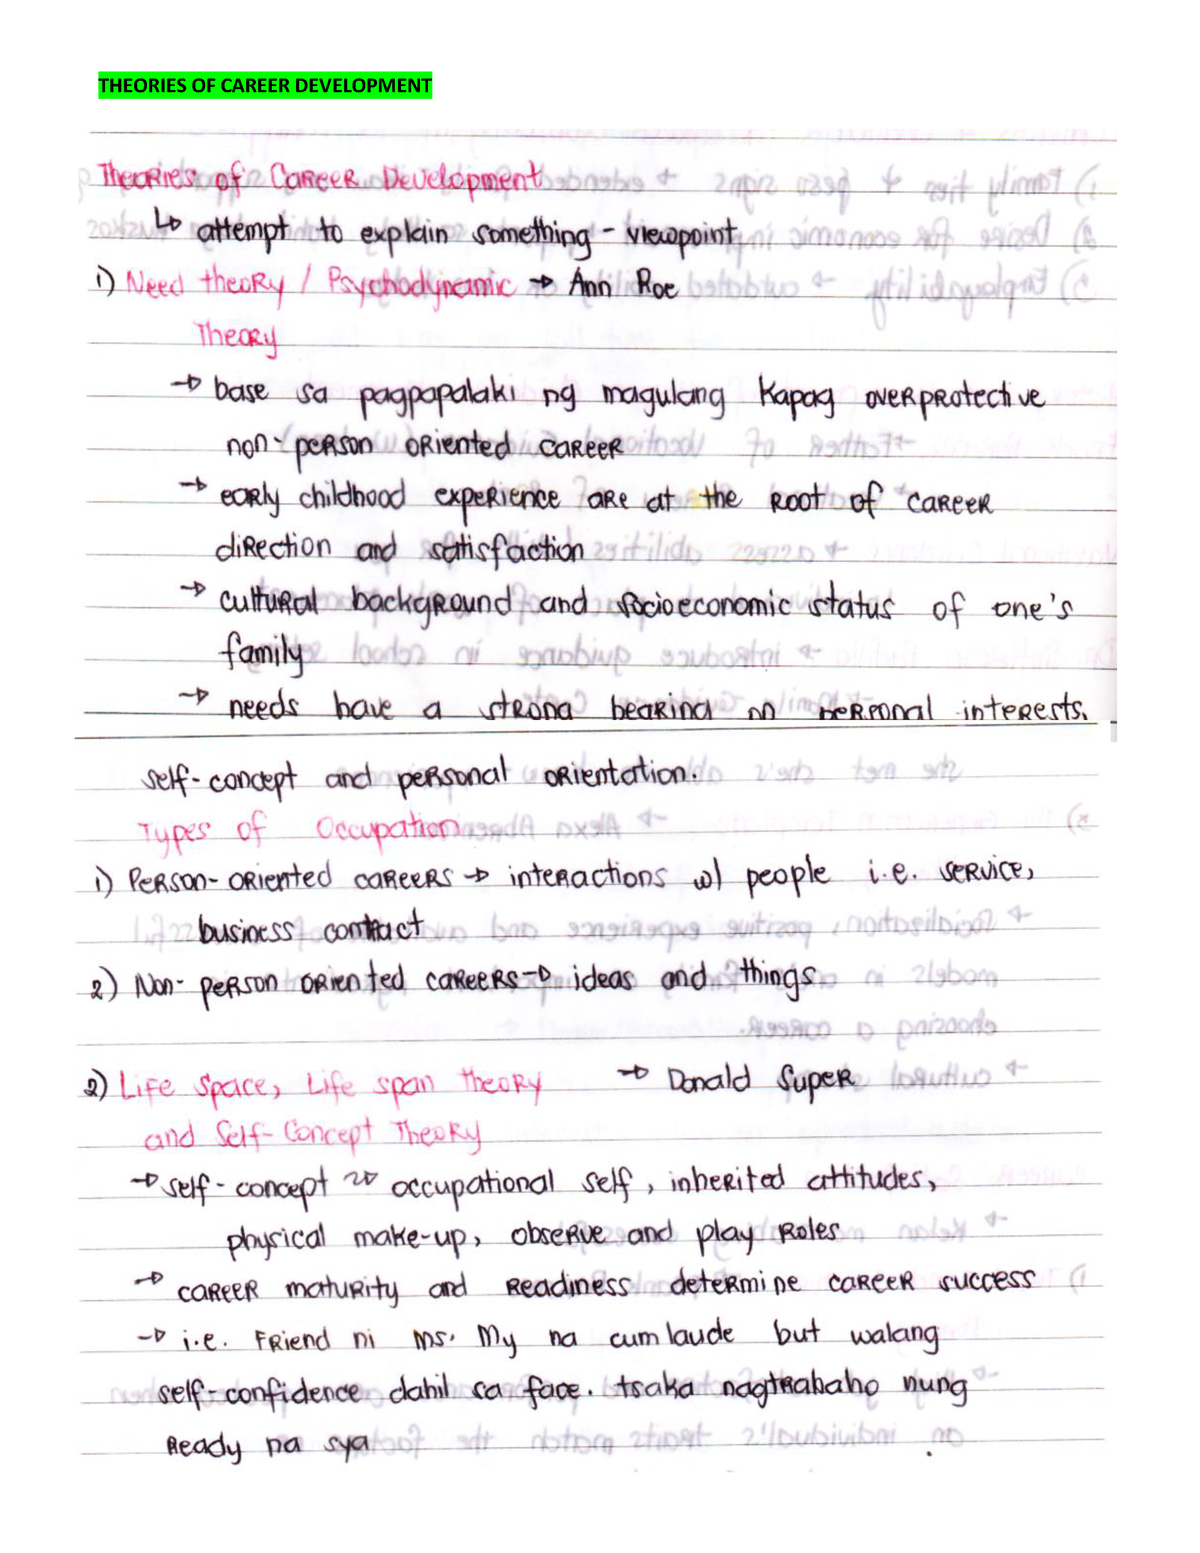 THEORIES OF CAREER DEVELOPMENT
Theories of Career Development
↳ attempt to explain something - viewpoint
1) Need theory / Psychodynamic → Ann Roe
Theory
→ base sa pagpapalaki ng magulang kapag overprotective
non-person oriented career
→ early childhood experience are at the root of career
direction and satisfaction
→ cultural background and socioeconomic status of one's
family
→ needs have a strong bearing on personal interests,
self-concept and personal orientation.
Types of Occupation
1) Person-oriented careers → interactions w/ people i.e. service,
business contract
2) Non-person oriented careers → ideas and things
2) Life Space, Life span theory → Donald Super
and Self-Concept Theory
→ self-concept → occupational self, inherited attitudes,
physical make-up, observe and play roles
→ career maturity and readiness determine career success
→ i.e. Friend ni ms. My na cum laude but walang
self-confidence dahil sa face. tsaka nagtrabaho nung
ready na sya